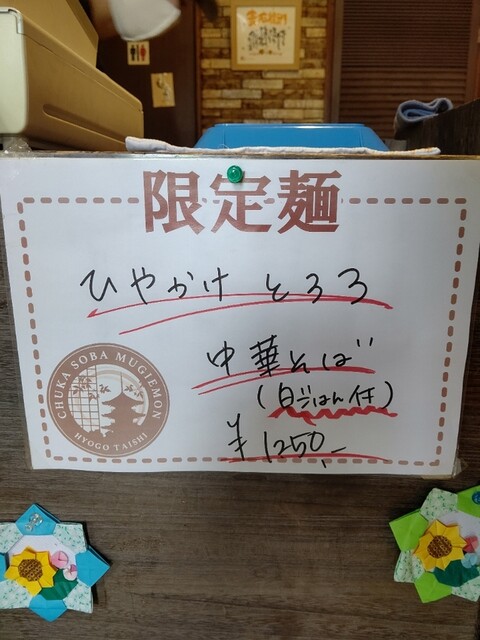 限定麺
ひやかけとろろ
中華そば
(白ごはん付)
¥1250,-
CHUKA SOBA MUGIEMON
HYOGO TAISHI